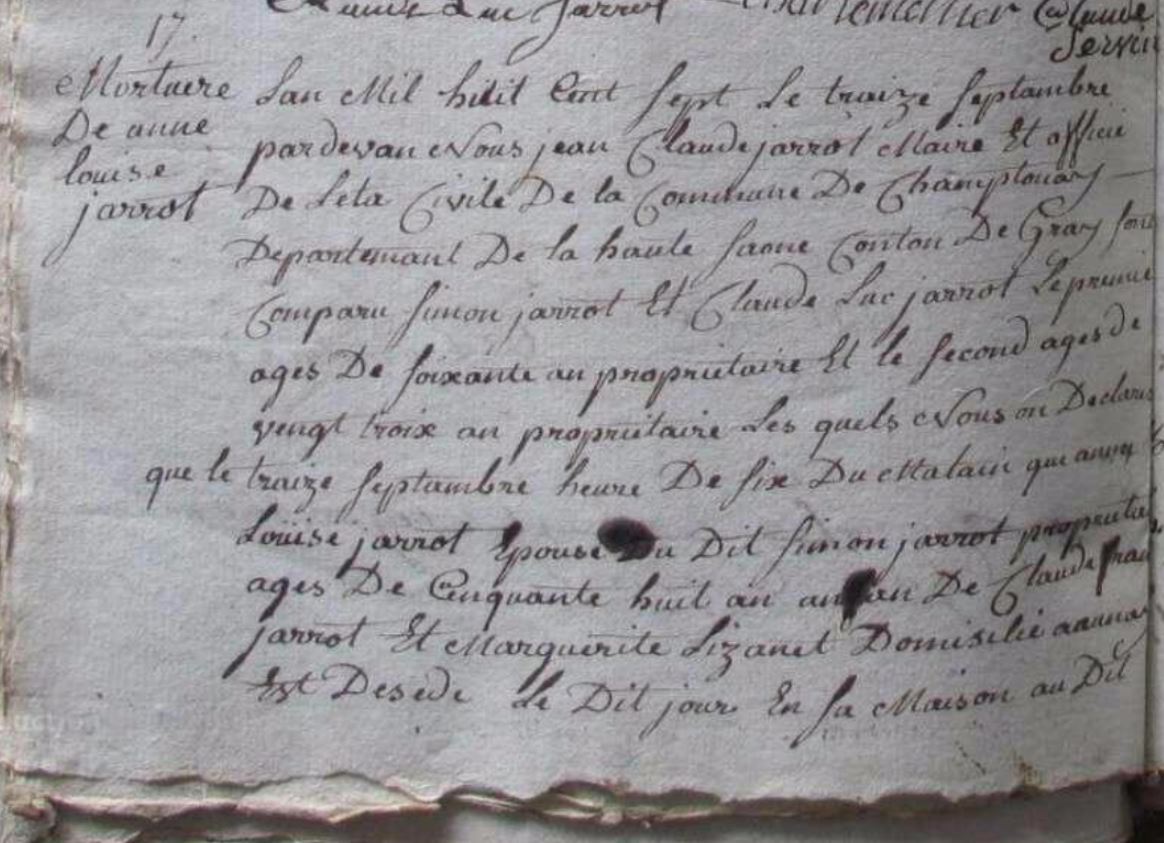 Claude Luc Jarrot Claude
Servin
17.
Mortuere
De anne
louise
jarrot
Lan Mil huit Cent sept Le traize septambre
pardevan Nous jean Claude jarrot Maire Et officié
De Léta Civile De la Commune De Champtonay
Departemant De la haute saone Conton De Gray sont
Comparu simon jarrot Et Claude Luc jarrot Le premié
ages De soixante an propriétaire Et le second ages de
vengt troix an propriétaire Les quels Nous on Declaré
que le traize septambre heure De six Du Matain que anne
Louise jarrot Epouse Du Dit simon jarrot propriétié
ages De Cinquante huit an De Claude
jarrot Et Marguerite Lizanet Domisilié
Est Desede Le Dit jour En sa Maison au Dit